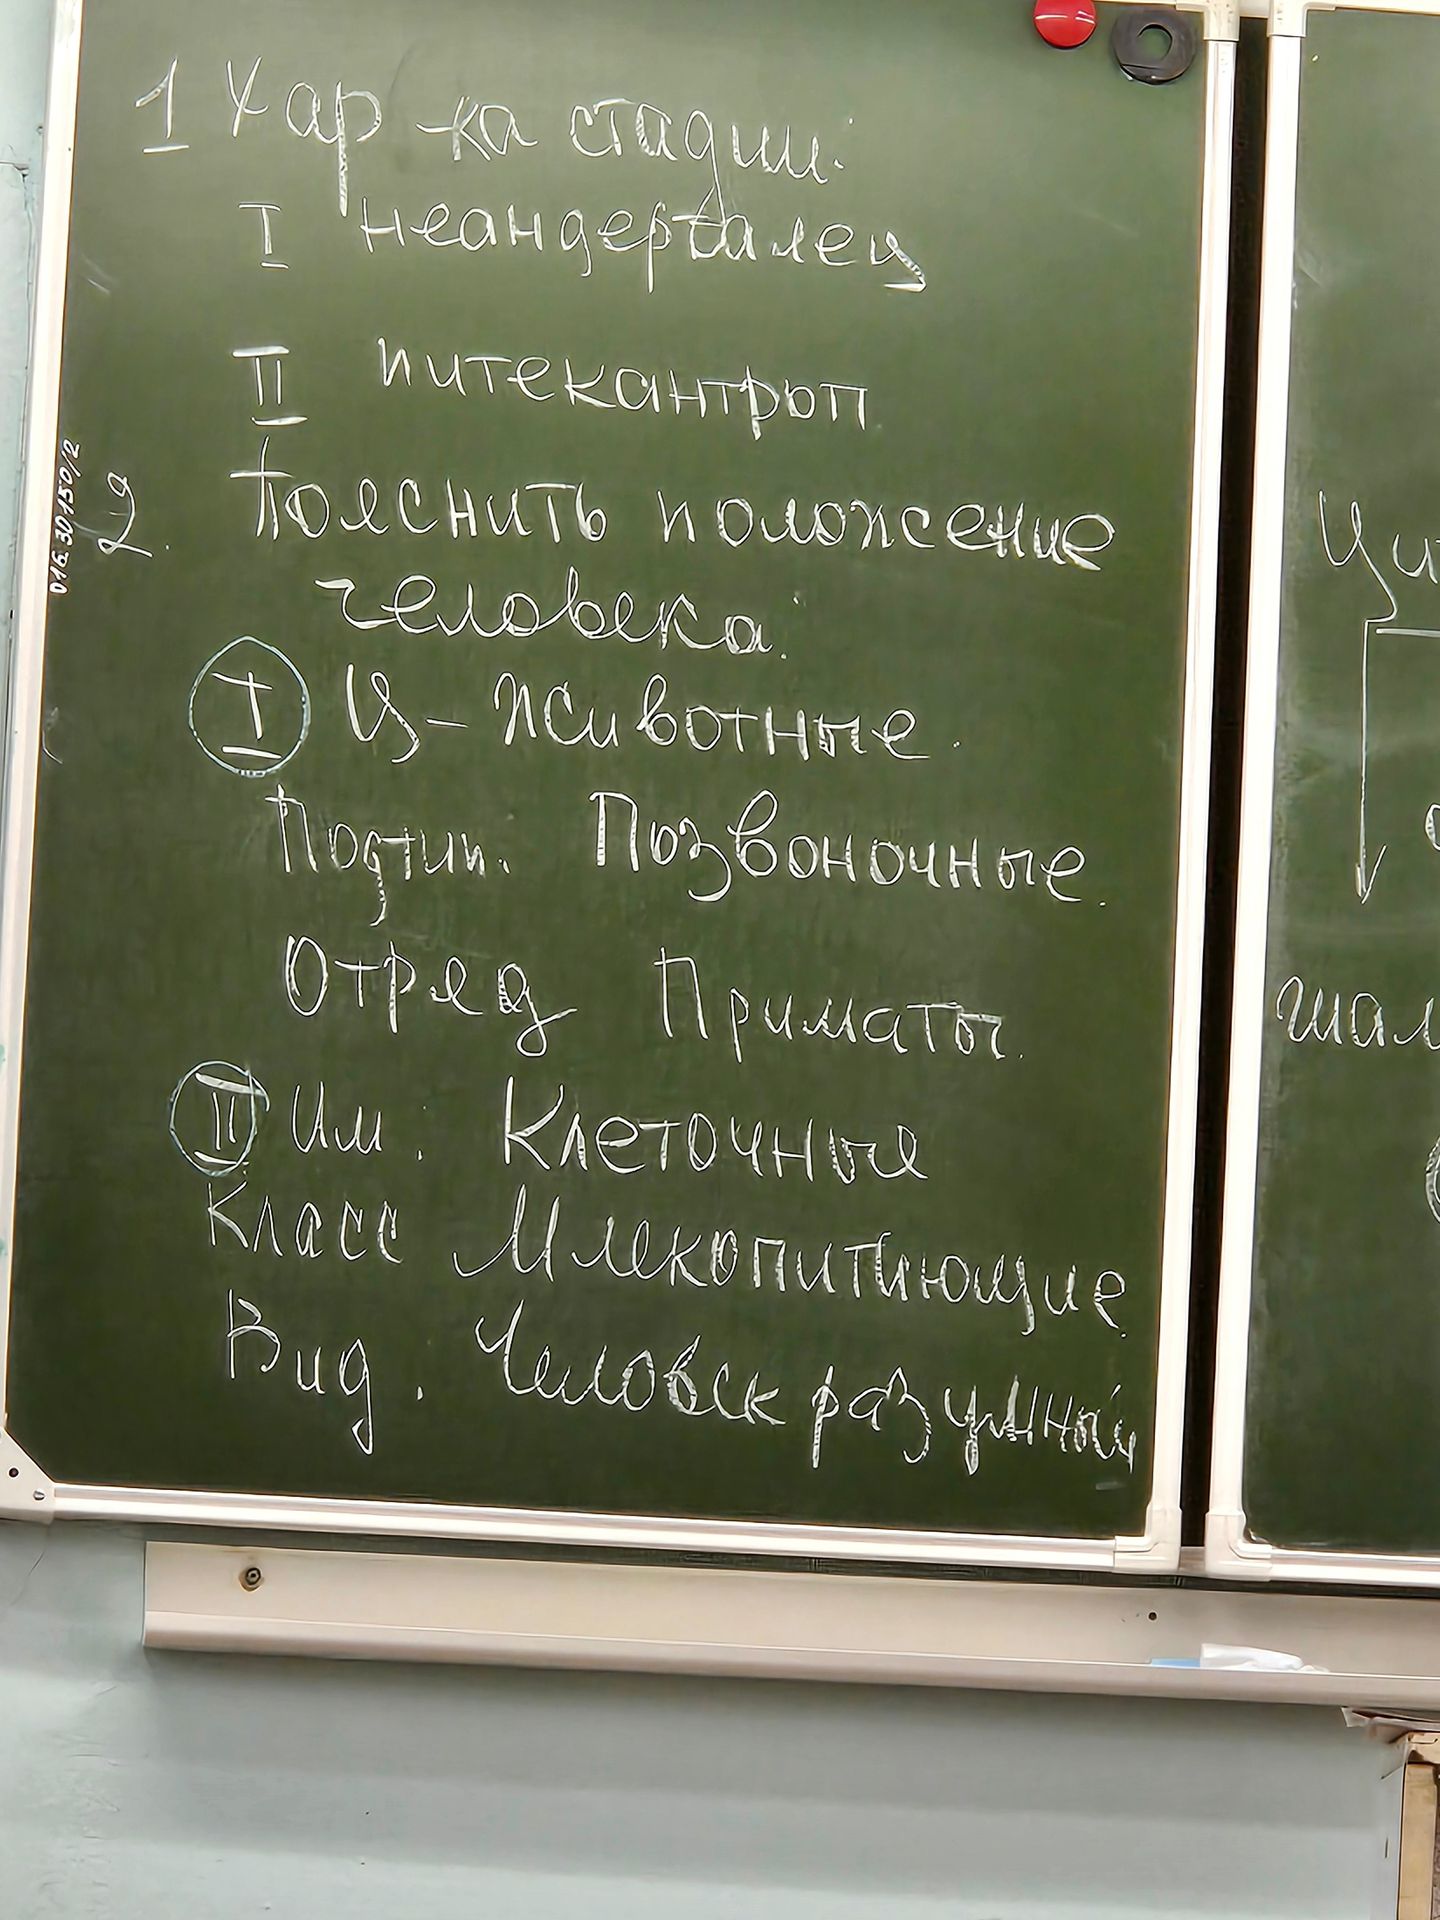 1 Хар-ка стадии:
I неандерталец
II питекантроп
2. Пояснить положение
человека:
I Ц - Животные.
Подтип. Позвоночные.
Отряд Приматы.
II Им: Клеточные
Класс Млекопитающие
Вид. Человек разумный
016.30150/2